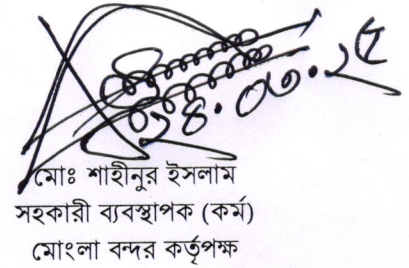 ২৪.০৩.২৫
মোঃ শাহীনুর ইসলাম
সহকারী ব্যবস্থাপক (কর্ম)
মোংলা বন্দর কর্তৃপক্ষ